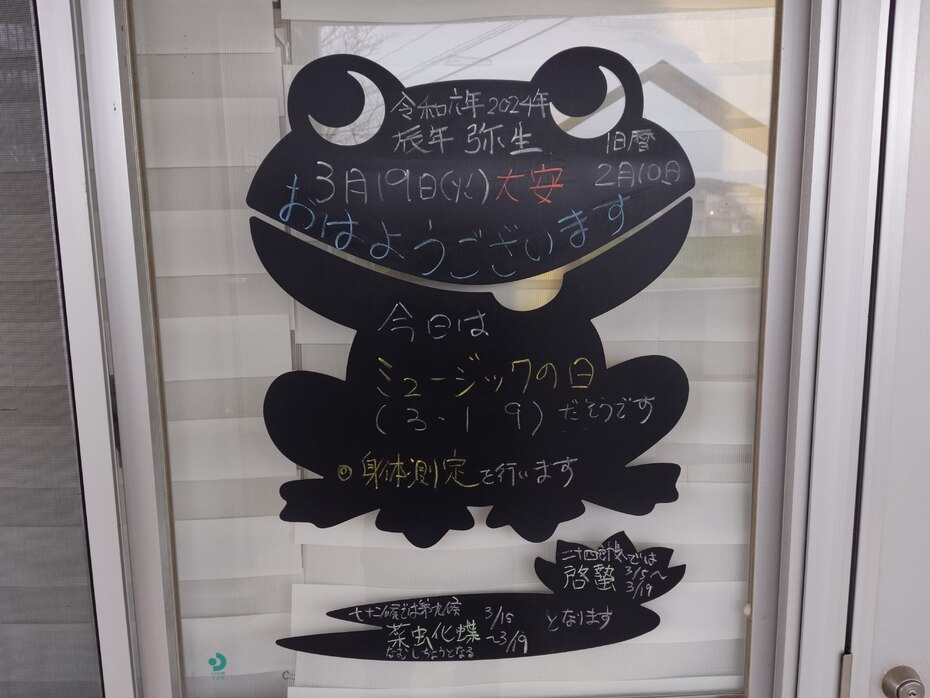 令和六年2024年
辰年 弥生
旧暦
3月19日(火)大安
2月10日
おはようございます
今日は
ミュージックの日
(3・1 9)だそうです
◎身体測定を行います
二十四節気では
啓蟄 3/15〜
3/19
七十二候では第九候 3/15
菜虫化蝶 〜3/19
なむしちょうとなる
となります